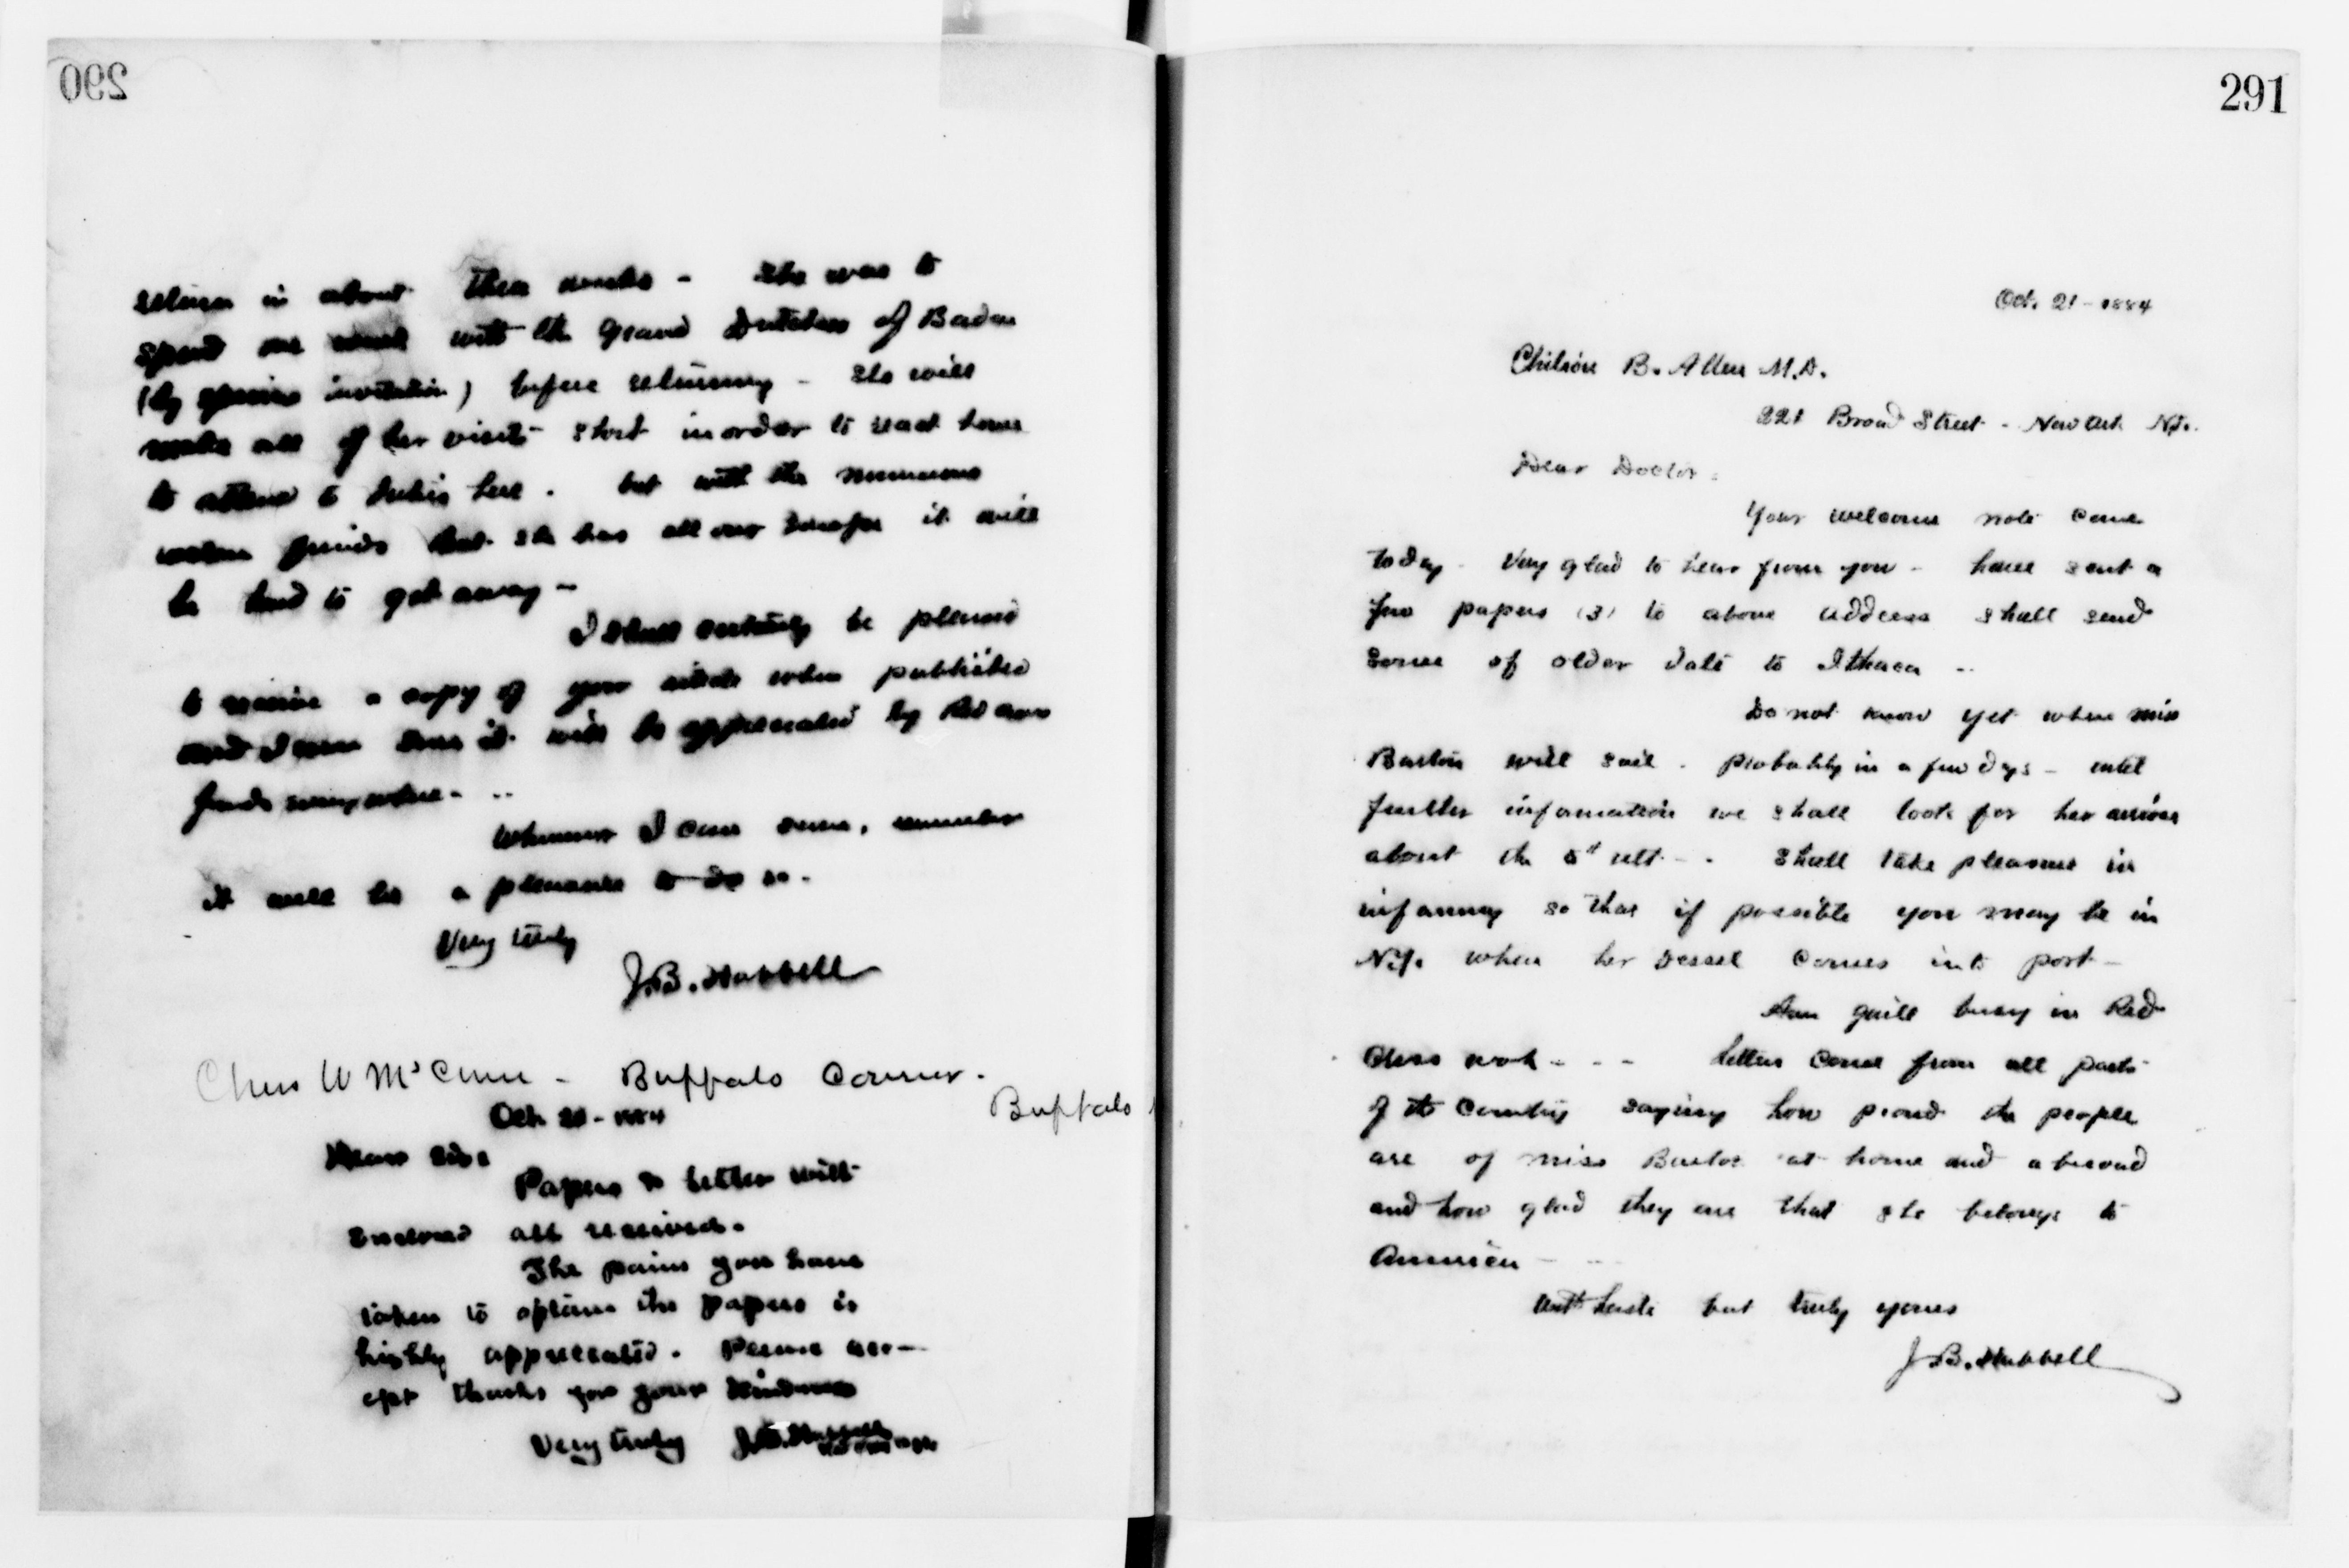 290
return in about three weeks - She was to
spend one week with the Grand Dutchess of Baden
(by special invitation) before returning - She will
make all of her visits short in order to reach home
to attend to duties here. but with the numerous
warm friends that she has all over Europe it will
be hard to get away -
I shall certainly be pleased
to receive a copy of your article when published
and I am sure it will be appreciated by Red Cross
friends everywhere - ..
Whenever I can serve, remember
it will be a pleasure to do so.
Very truly
J.B. Hubbell
Chas W McCune - Buffalo Courier.
Buffalo
Oct. 21 - 1884
Dear Sir:
Papers & letter with
enclosed all received.
The pains you have
taken to obtain the papers is
highly appreciated. Please acc-
ept thanks for your kindness
Very truly J.B. Hubbell
291
Oct. 21 - 1884
Chilson B. Allen M.D.
221 Broad Street - Newark N.J.
Dear Doctor:
Your welcome note came
today - Very glad to hear from you - have sent a
few papers (3) to above address shall send
some of older date to Ithaca -
Do not know yet when Miss
Barton will sail. probably in a few days - until
further information we shall look for her arrival
about the 5th ult - . Shall take pleasure in
informing so that if possible you may be in
N.Y. when her vessel comes into port -
Am quite busy in Red
Cross work - - - Letters come from all parts
of the country saying how proud the people
are of Miss Barton at home and abroad
and how glad they are that she belongs to
America -
With haste but truly yours
J.B. Hubbell